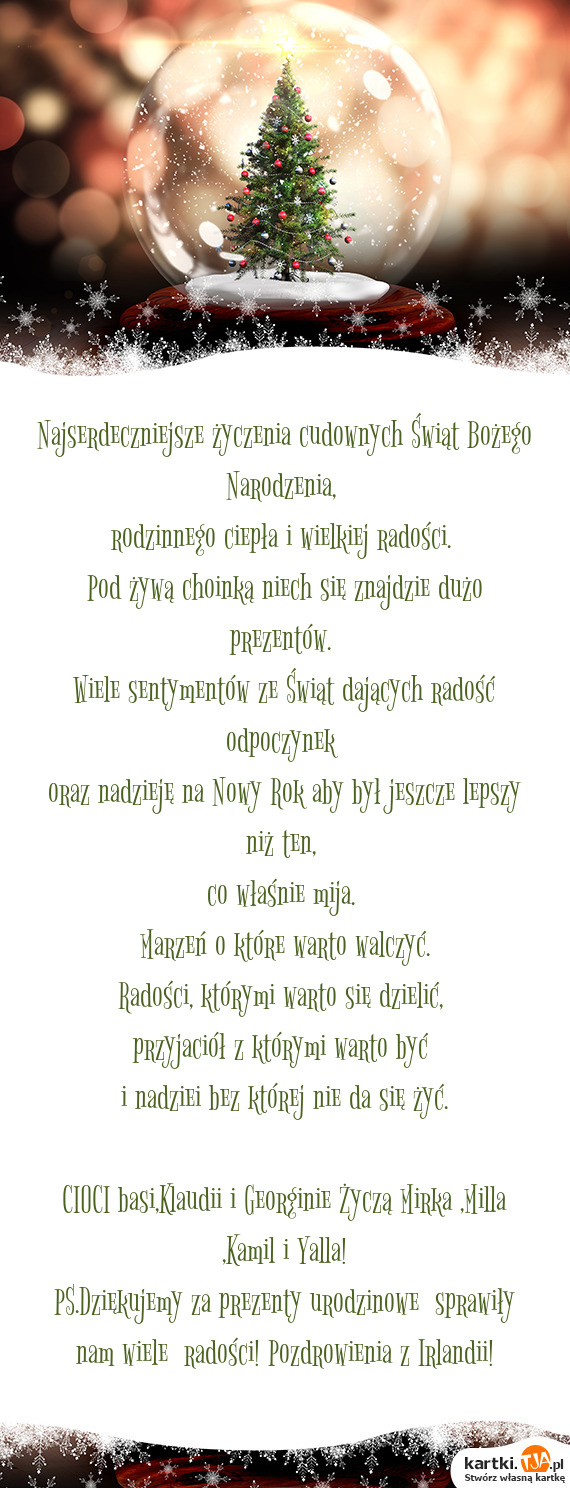 Najserdeczniejsze życzenia cudownych Świąt Bożego
Narodzenia,
rodzinnego ciepła i wielkiej radości.
Pod żywą choinką niech się znajdzie dużo
prezentów.
Wiele sentymentów ze Świąt dających radość
odpoczynek
oraz nadzieję na Nowy Rok aby był jeszcze lepszy
niż ten,
co właśnie mija.
Marzeń o które warto walczyć.
Radości, którymi warto się dzielić,
przyjaciół z którymi warto być
i nadziei bez której nie da się żyć.
CIOCI basi,Klaudii i Georginie Życzą Mirka ,Milla
,Kamil i Yalla!
PS.Dziękujemy za prezenty urodzinowe  sprawiły
nam wiele  radości! Pozdrowienia z Irlandii!
kartki.TJA.pl
Stwórz własną kartkę